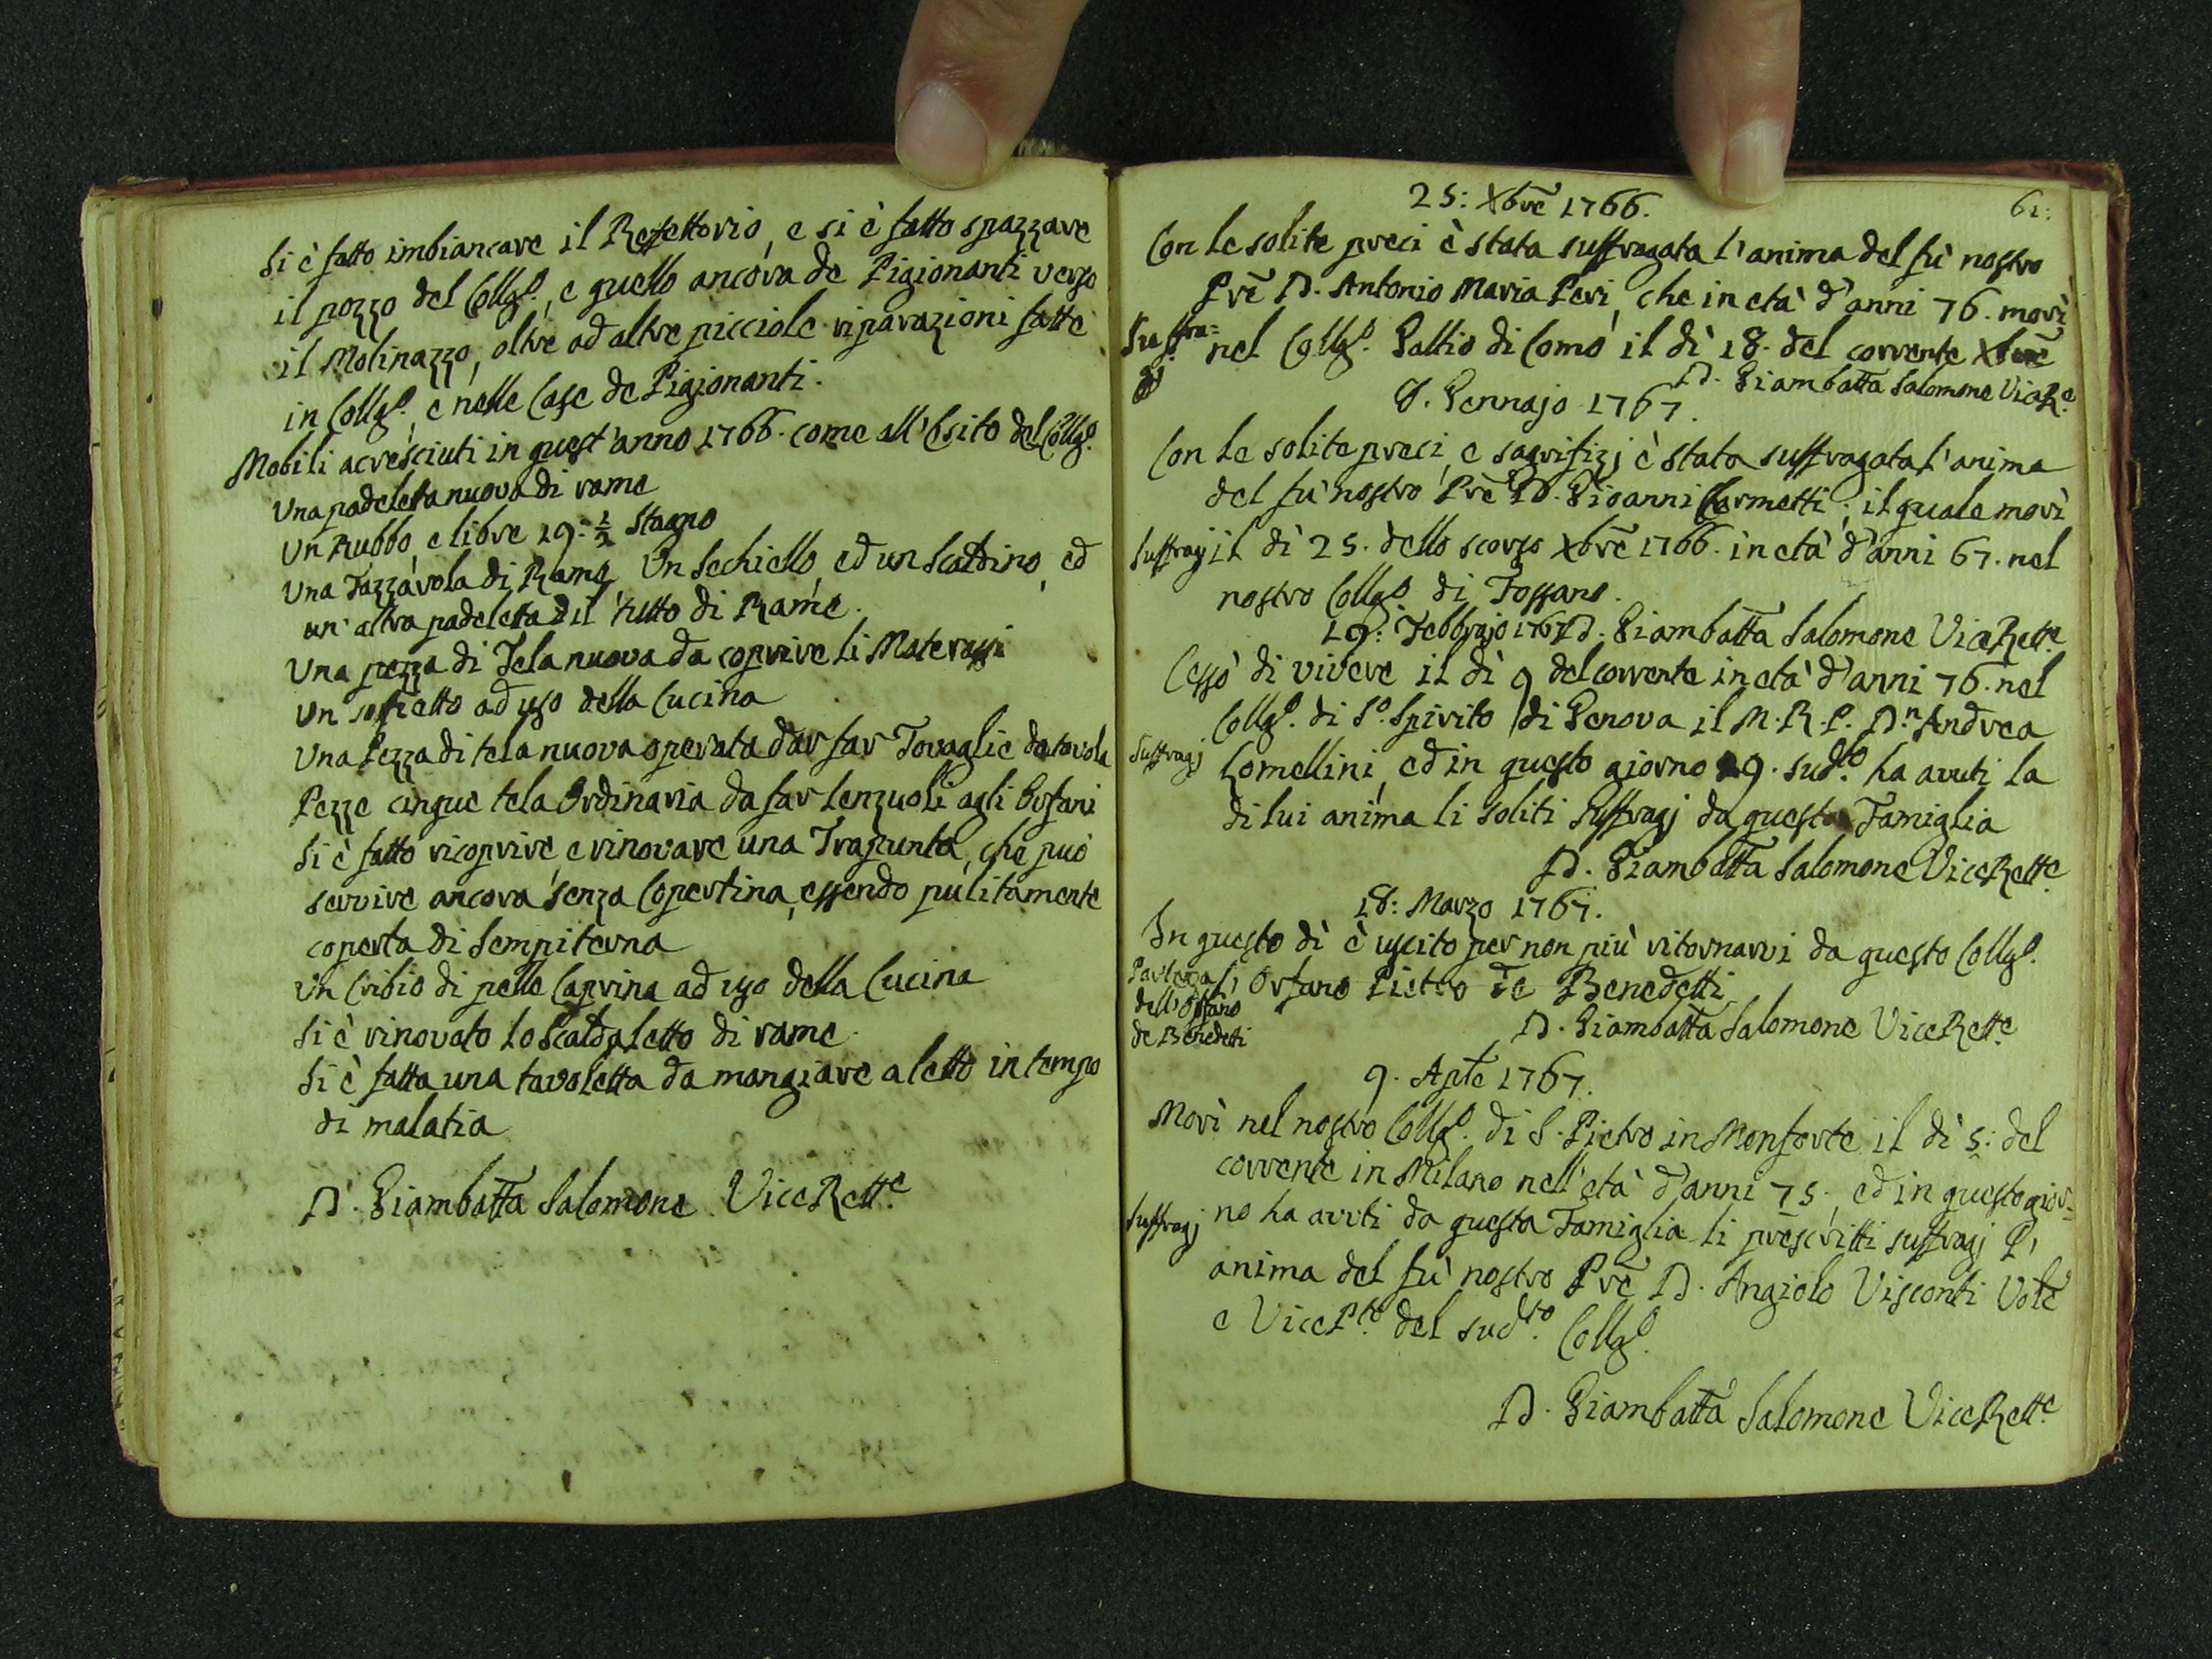 Si è fatto imbiancare il Refettorio, e si è fatto spazzare
il pozzo del Collg.º, e quello ancora de Pigionanti verso
il Molinazzo, oltre ad altre picciole riparazioni fatte
in Collg.º, e nelle Case de Pigionanti.
Mobili acresciuti in quest'anno 1766. come all'Esito del Collg.º
Una padeletta nuova di rame
Un Rubbo, e libre 19. ½ Stagno
Una Tazzarola di Rame, Un Sechiello, ed un Scaldino, ed
un'altra padeletta il tutto di Rame.
Una pezza di Tela nuova da coprire li Materassi
Un soffietto ad uso della Cucina
Una Pezza di tela nuova operata da far Tovaglie da tavola
Pezze cinque tela Ordinaria da far Lenzuoli agli Orfani
Si è fatto ricoprire e rinovare una Trapunta, che può
servire ancora senza Copertina, essendo pulitamente
coperta di Sempiterna
Un Cribio di pelle Caprina ad uso della Cucina
Si è rinovato lo Scaldaletto di rame.
Si è fatta una tavoletta da mangiare a letto in tempo
di malatia
D. Giambatta Salomone ViceRett.e
61:
25: Xbre 1766.
Con le solite preci è stata suffragata l'anima del fù nostro
Pre D. Antonio Maria Peri, che in età d'anni 76. morì
Suffra=
gj
nel Collg.º Gallio di Como il dì 18. del corrente Xbre
D. Giambatta Salomone ViceR.e
8. Gennajo 1767.
Con le solite preci, e sagrifizj è stata suffragata l'anima
del fù nostro Pre D. Gioanni Cermetti, il quale morì
Suffragj il dì 25. dello scorso Xbre 1766. in età d'anni 67. nel
nostro Collg.º di Fossano.
19: Febbrajo 1767 D. Giambatta Salomone ViceRett.e
Cessò di vivere il dì 9 del corrente in età d'anni 76. nel
Collg.º di S.º Spirito di Genova il M.R.P. D.n Andrea
Suffragj Lomellini, ed in questo giorno 19. sud.to ha avuti la
di lui anima li soliti Suffragj da questa Famiglia
D. Giambatta Salomone ViceRett.e
18: Marzo 1767.
In questo dì è uscito per non più ritornarvi da questo Collg.º
Partenza
dell'Orfano
de Benedetti
l'Orfano Pietro de Benedetti
D. Giambatta Salomone ViceRett.e
9. Aple 1767.
Morì nel nostro Collg.º di S. Pietro in Monforte il dì 5: del
corrente in Milano nell'età d'anni 75, ed in questo gior=
Suffragj no ha avuti da questa Famiglia li prescritti suffragj l'
anima del fù nostro Pre D. Angiolo Visconti Vole
e ViceP.to del sud.to Collg.º
D. Giambatta Salomone ViceRett.e